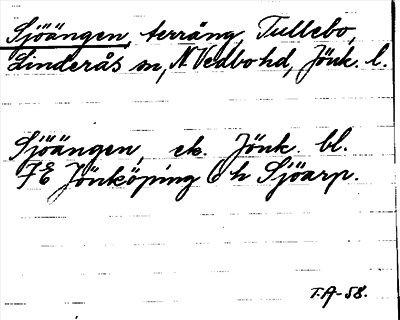 Sjöängen, terräng, Tullebo,
Linderås sn, N Vedbo hd, Jönk. l.
Sjöängen, ek. Jönk. bl.
7E Jönköping 6 h Sjöarp.
T.A-58.